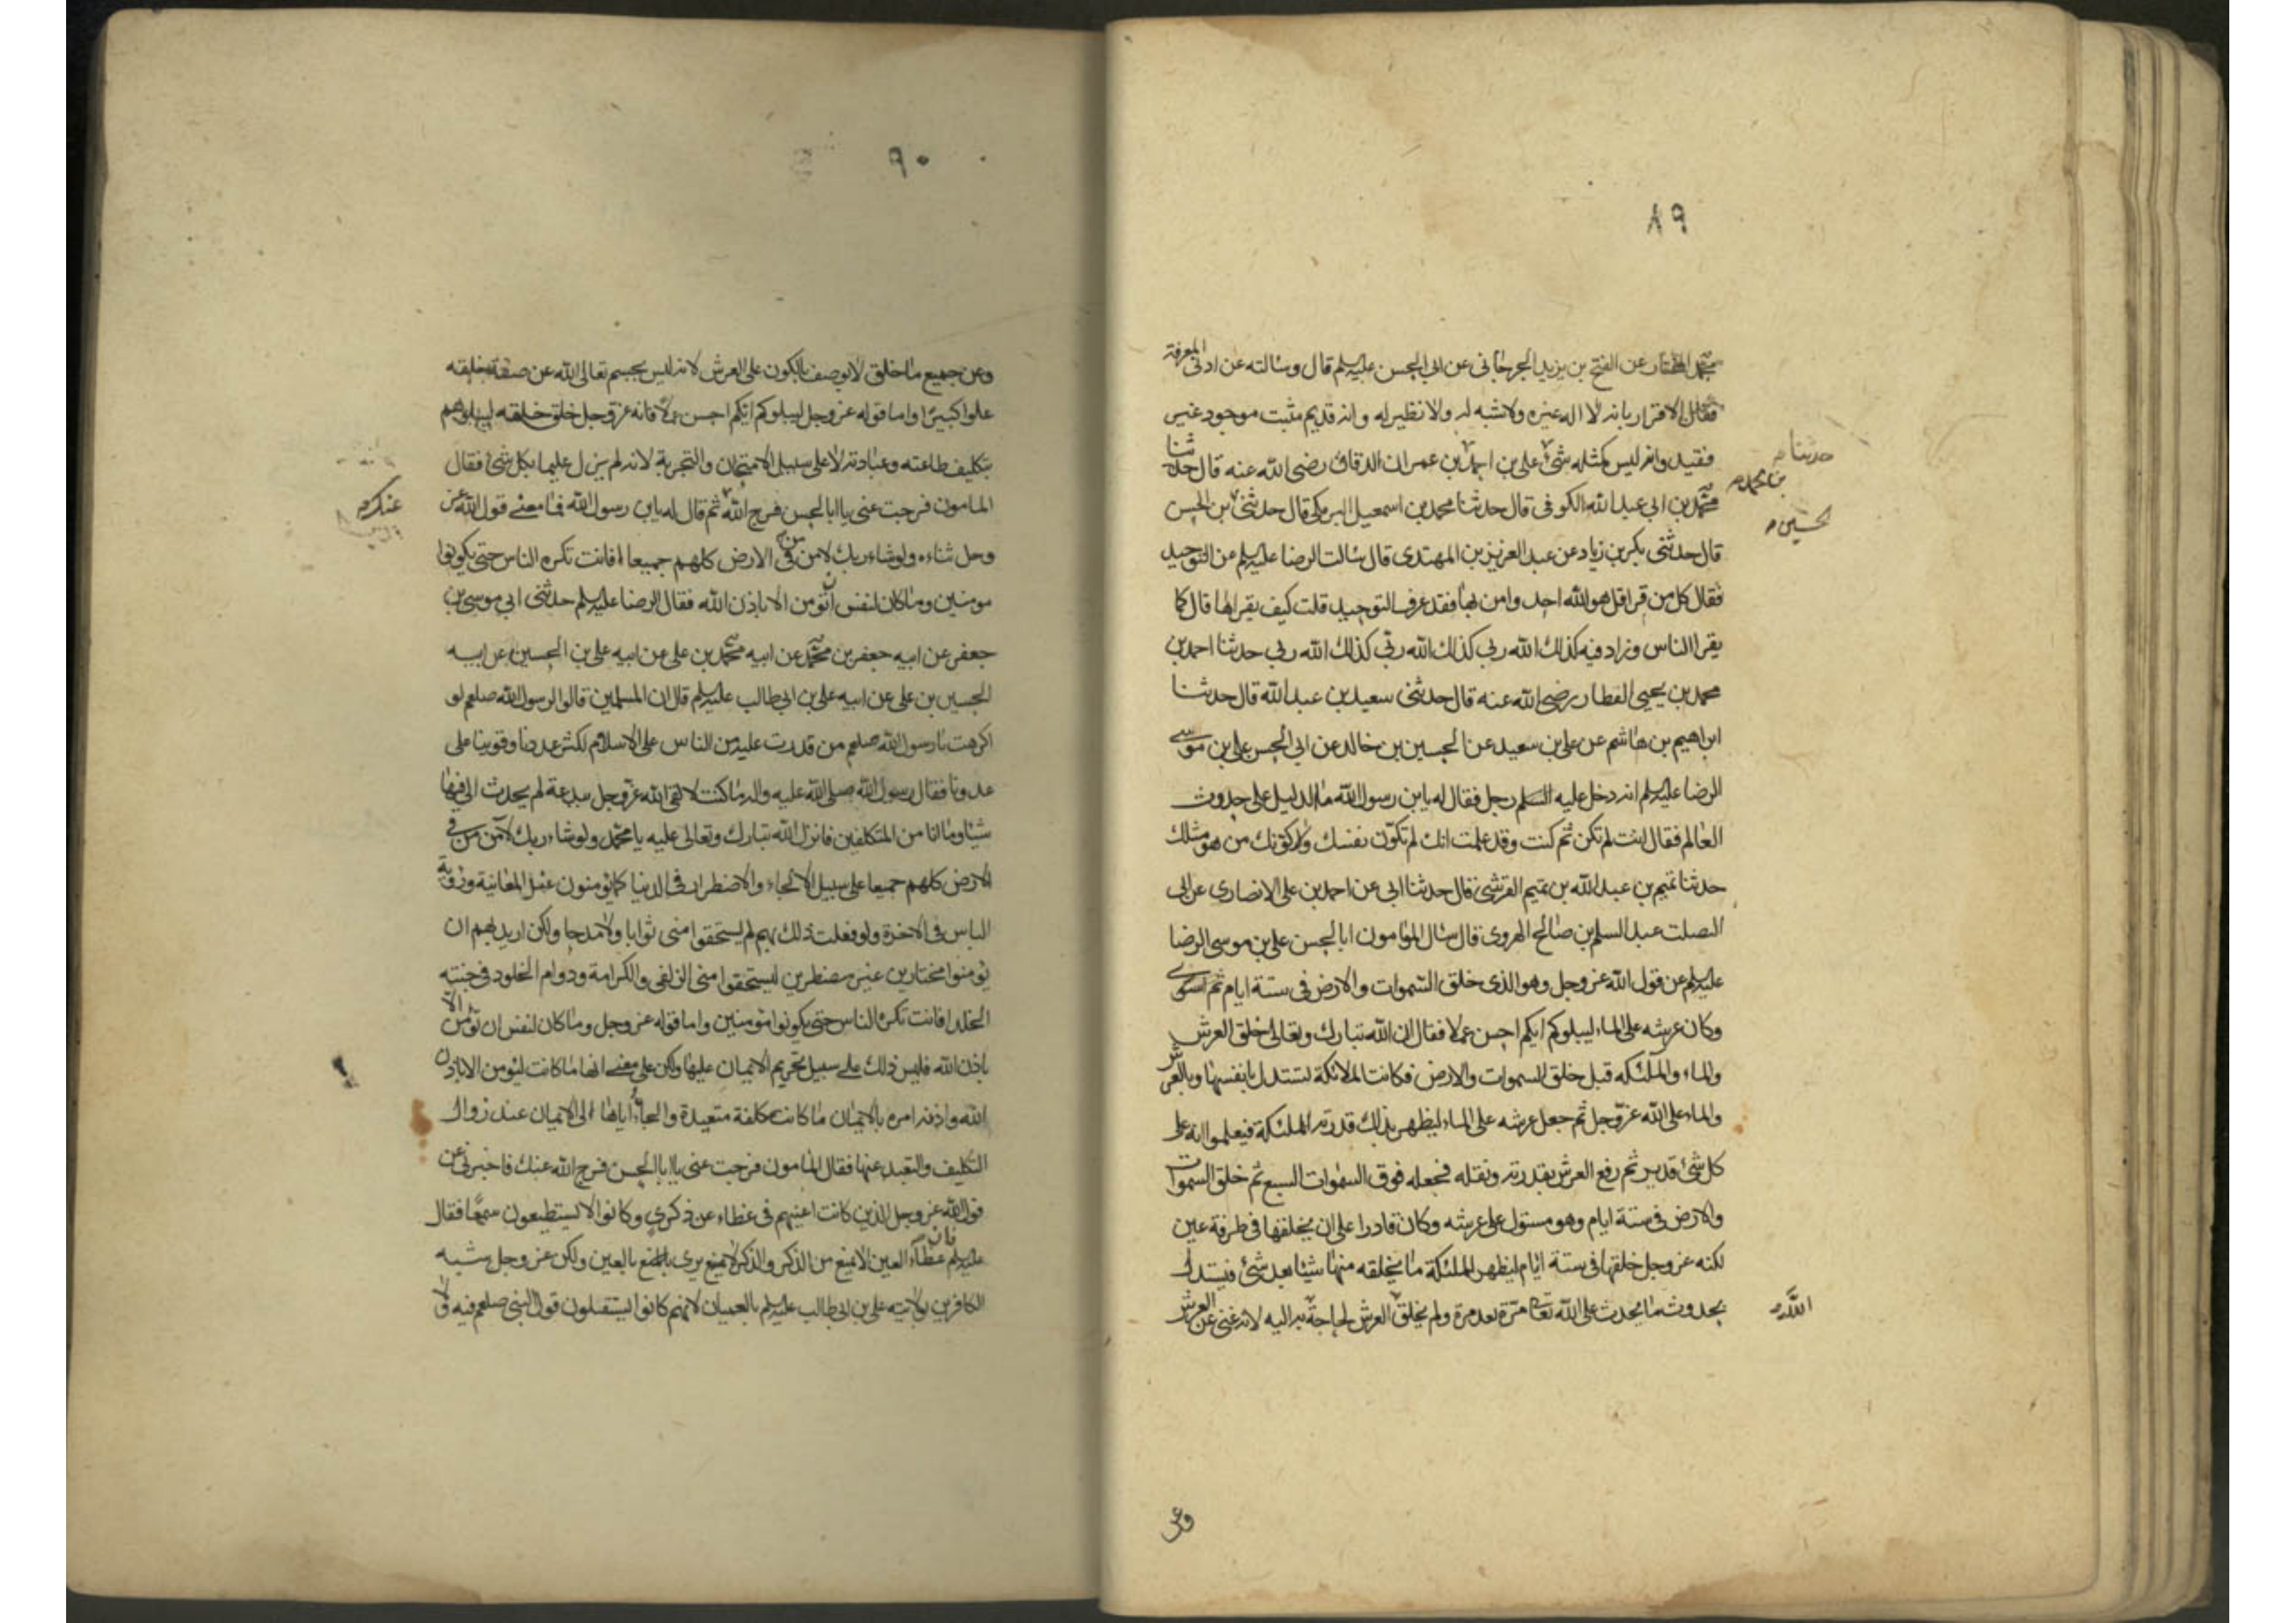 ٨٩
محمد المختار عن الفتح بن يزيد الجرجاني عن ابي الحسن عليه السلم قال وسالته عن ادنى المعرفة
فقال الاقرار بانه لا اله غيره ولا شبه له ولا نظير له وانه قديم مثبت موجود غير
فقيد وانه ليس كمثله شئ علي بن احمد بن عمران الدقاق رضى الله عنه قال حدثنا
حدثنا
بن محمد
محمد بن ابي عبد الله الكوفي قال حدثنا محمد بن اسمعيل البرمكي قال حدثني بن الحسن
الحسين
قال حدثنى بكر بن زياد عن عبد العزيز بن المهتدى قال سالت الرضا عليه السلم عن التوحيد
فقال كل من قرا قل هو الله احد وامن بها فقد عرف التوحيد قلت كيف يقراها قال كما
يقرا الناس وزاد فيه كذلك الله ربي كذلك الله ربي كذلك الله ربي حدثنا احمد بن
محمد بن يحيى العطار رضى الله عنه قال حدثنى سعيد بن عبد الله قال حدثنا
ابراهيم بن هاشم عن علي بن سعيد عن الحسين بن خالد عن ابي الحسن علي بن موسى
الرضا عليه السلم انه دخل عليه السلم رجل فقال له يابن رسول الله ما الدليل على حدوث
العالم فقال انت لم تكن ثم كنت وقد علمت انك لم تكون نفسك ولا كونك من هو مثلك
حدثنا تميم بن عبد الله بن تميم القرشي قال حدثنا ابي عن احمد بن علي الانصارى عن ابي
الصلت عبد السلم بن صالح الهروى قال سال المامون ابا الحسن علي بن موسى الرضا
عليه السلم عن قول الله عز وجل وهو الذى خلق السموات والارض في ستة ايام ثم استوى
وكان عرشه على الماء ليبلوكم ايكم احسن عملا فقال ان الله تبارك وتعالى خلق العرش
والماء والملئكه قبل خلق السموات والارض فكانت الملائكة تستدل بانفسها وبالعرش
والماء على الله عز وجل ثم جعل عرشه على الماء ليظهر بذلك قدرته للملئكة فيعلموا انه على
كل شئ قدير ثم رفع العرش بقدرته ونقله فجعله فوق السموات السبع ثم خلق السموات
والارض في ستة ايام وهو مستول على عرشه وكان قادرا على ان يخلقها في طرفة عين
لكنه عز وجل خلقها في ستة ايام ليظهر للملئكة ما يخلقه منها شيئا بعد شئ فيستدل
بحدوث ما يحدث على الله تعالى مرة بعد مرة ولم يخلق العرش لحاجة به اليه لانه غنى عن العرش
الله
وعن
٩٠
وعن جميع ما خلق لا يوصف بالكون على العرش لانه ليس بجسم تعالى الله عن صفة خلقه
علوا كبيرا واما قوله عز وجل ليبلوكم ايكم احسن عملا فانه عز وجل خلق خلقه ليبلوهم
بتكليف طاعته وعبادته لا على سبيل الامتحان والتجربة لانه لم يزل عليما بكل شئ فقال
المامون فرجت عنى يا ابا الحسن فرج الله ثم قال له يابن رسول الله فما معنى قول الله عز
عنك
وجل ثناءه ولو شاء ربك لامن من في الارض كلهم جميعا افانت تكره الناس حتى يكونوا
مومنين وما كان لنفس ان تؤمن الا باذن الله فقال الرضا عليه السلم حدثنى ابي موسى بن
جعفر عن ابيه جعفر بن محمد عن ابيه محمد بن علي عن ابيه علي بن الحسين عن ابيه
الحسين بن علي عن ابيه علي بن ابي طالب عليه السلم قال ان المسلمين قالوا لرسول الله صلعم لو
اكرهت يا رسول الله صلعم من قدرت عليه من الناس على الاسلام لكثر عددنا وقوينا على
عدونا فقال رسول الله صلى الله عليه واله ما كنت لالقى الله عز وجل ببدعة لم يحدث الي فيها
شيئا وما انا من المتكلفين فانزل الله تبارك وتعالى عليه يا محمد ولو شاء ربك لآمن من في
الارض كلهم جميعا على سبيل الالجاء والاضطرار في الدنيا كما يؤمنون عند المعاينة ورؤية
الباس في الاخرة ولو فعلت ذلك بهم لم يستحقوا منى ثوابا ولا مدحا ولكن اريد بهم ان
يومنوا مختارين غير مضطرين ليستحقوا منى الزلفى والكرامة ودوام الخلود في جنته
الخلد افانت تكره الناس حتى يكونوا مؤمنين واما قوله عز وجل وما كان لنفس ان تؤمن الا
باذن الله فليس ذلك على سبيل تحريم الايمان عليها ولكن على معنى انها ما كانت لتومن الا باذن
الله واذنه امره بالايمان ما كانت مكلفة متعبدة والجاؤه اياها الى الايمان عند زوال
التكليف والتعبد عنها فقال المامون فرجت عنى يا ابا الحسن فرج الله عنك فاخبرني عن
قول الله عز وجل الذين كانت اعينهم في غطاء عن ذكري وكانوا لا يستطيعون سمعا فقال
عليه السلم ان غطاء العين لا يمنع من الذكر والذكر لا يرى بالعين ولكن عز وجل شبه
الكافرين بولاية علي بن ابي طالب عليه السلم بالعميان لانهم كانوا يستثقلون قول النبي صلعم فيه ولا